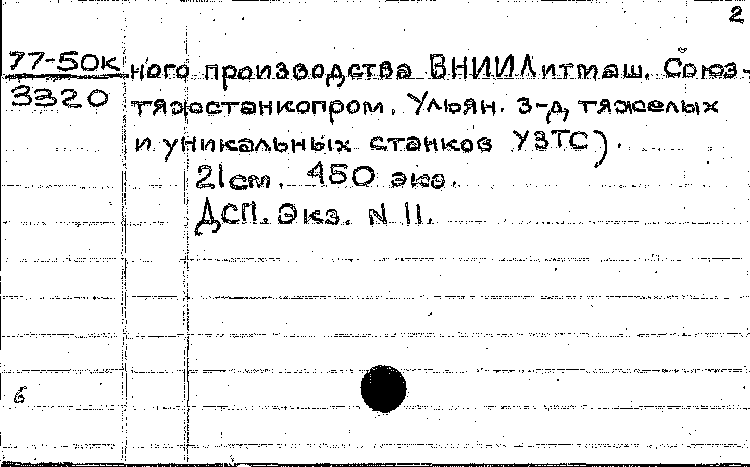 2
77-50к ного производства ВНИИЛитмаш, Союз-
3320 тяжстанкопром, Ульян. з-д, тяжелых
и уникальных станков УЗТС).
21 см. 450 экз.
ДСП. Экз. N 11.
6